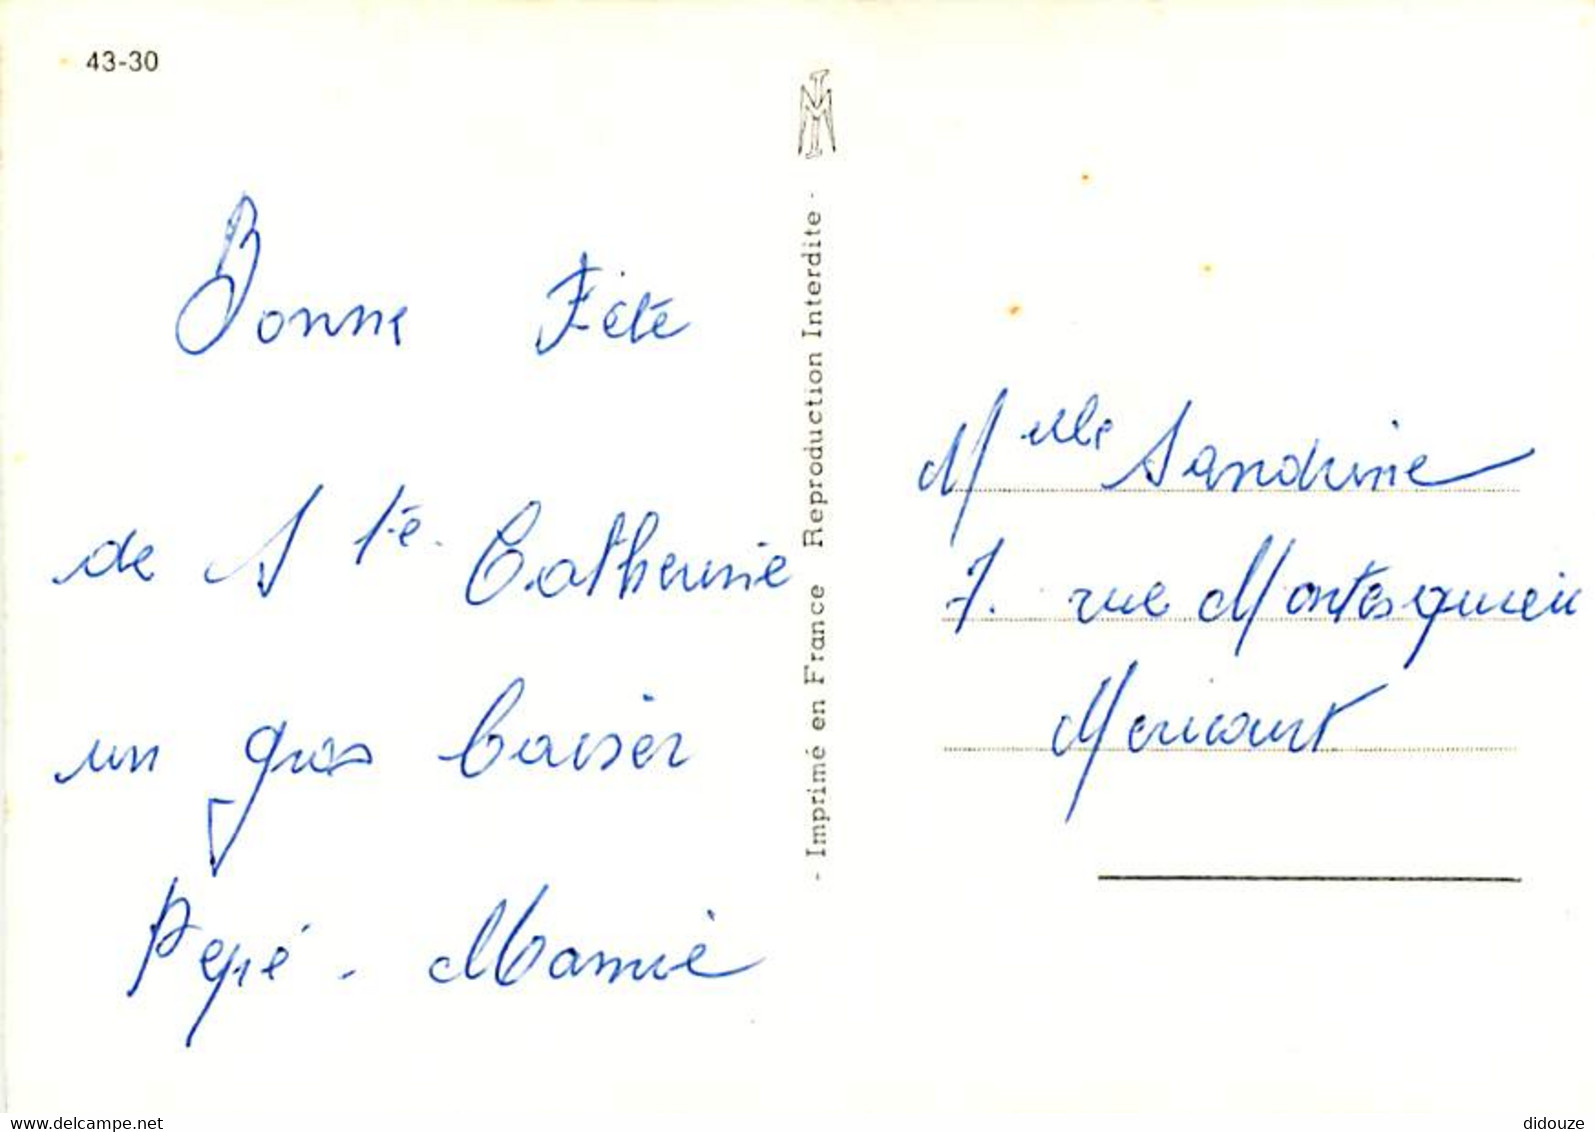 43-30
Bonne Fête
de Ste. Catherine
un gros baiser
Pépé - Mamie
- Imprimé en France Reproduction Interdite -
Melle Sandrine
7. rue Montesquieu
Mericourt
www.delcampe.net
didouze